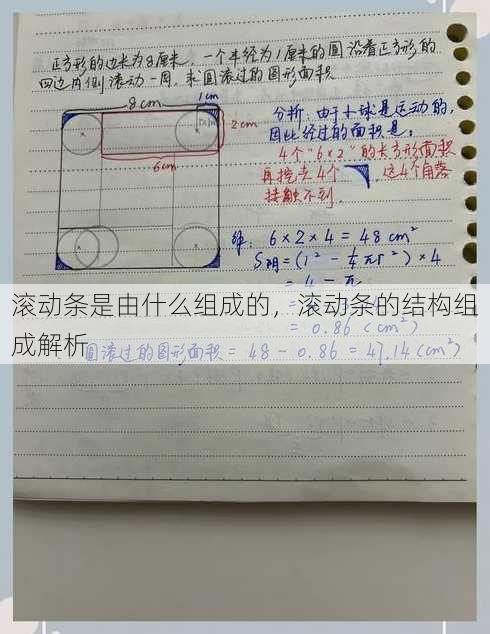 正方形的边长为8厘米，一个半径为1厘米的圆沿着正方形的
四边内侧滚动一周，求圆滚过的图形面积
8cm
1cm
2cm
6cm
分析：由于小球是运动的，
因此经过的面积是：
4个"6×2"的长方形面积
再挖去4个 ，这4个角落
接触不到．
解：6×2×4＝48cm²
S阴＝(1²－1/4πr²)×4
＝4－π
＝0.86（cm²）
圆滚过的图形面积＝48－0.86＝47.14（cm²）
滚动条是由什么组成的，滚动条的结构组
成解析